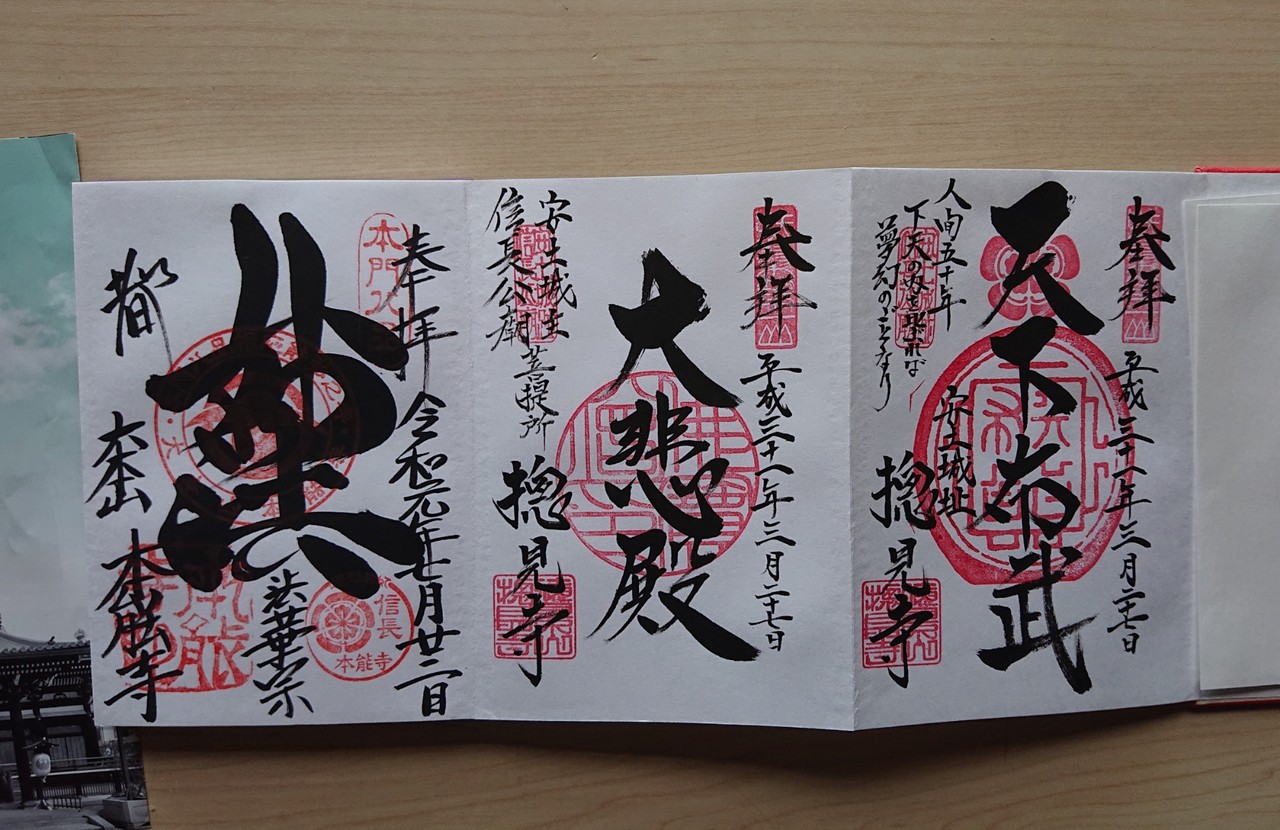 奉拝
平成三十一年三月二十七日
天下布武
安土城址
人間五十年
夢幻のごとくなり
摠見寺
奉拝
平成三十一年三月二十七日
大悲殿
安土城主
信長公廟
菩提所
摠見寺
奉拝
令和元年七月廿二日
本門八
妙法
法華宗
信長
本能寺
都
大本山
本能寺